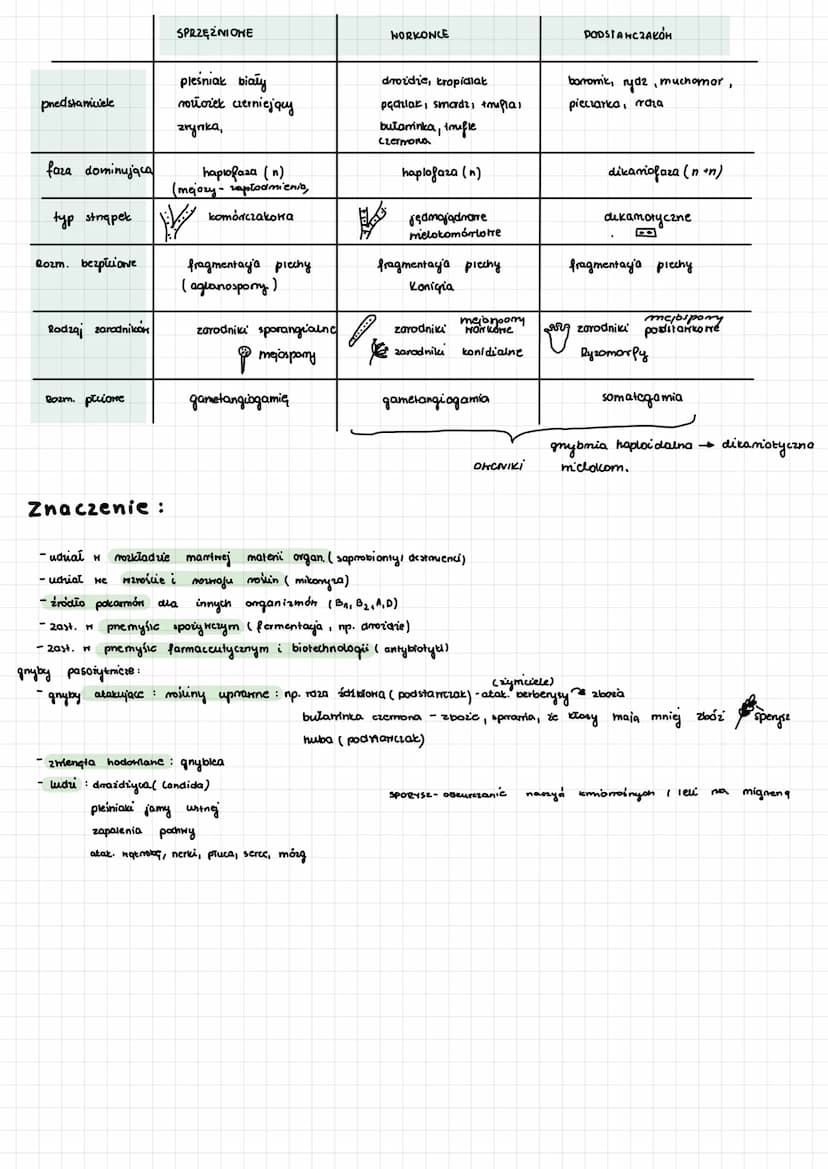 SPRZĘŻNIOWE WORKOWCE PODSTAWCZAKÓW
przedstawiciele
pleśniak biały
rozłożek czerniejący
drożdże, kropidlak
pędzlak, smardz, trufla,
buławinka, trufle
czerwona
borowik, rydz, muchomor,
pieczarka, rdza
faza dominująca
haplofaza (n)
(mejozy - zapłodnienia)
haplofaza (n)
dikariofaza (n+n)
typ strzępek
komórczakowa
jednojądrowe
wielokomórkowe
dikariotyczne
Rozm. bezpłciowe
fragmentacja plechy
(aplanospory)
fragmentacja plechy
Konidia
fragmentacja plechy
Rodzaj zarodników
zarodniki sporangialne
mejospory
mejospory
zarodniki workowe
zarodniki konidialne
mejospory
zarodniki podstawkowe
Ryzomorfy
Rozm. płciowe
gametangiogamię
gametangiogamia
somatogamia
OWOCNIKI
grzybnia haploidalna → dikariotyczna
wielokom.
Znaczenie:
- udział w rozkładzie martwej materii organ. (saprobionty, destruenci)
- udział we wzroście i rozwoju roślin (mikoryza)
- źródło pokarmów dla innych organizmów (B1, B2, A, D)
- zast. w przemyśle spożywczym (fermentacja, np. drożdże)
- zast. w przemyśle farmaceutycznym i biotechnologii (antybiotyki)
grzyby pasożytnicze:
(żywiciele)
- grzyby atakujące: rośliny uprawne: np. rdza źdźbłowa (podstawczak) - atak. berberysy zboża
buławinka czerwona - zboże, sprawia, że kłosy mają mniej zbóż sporysz
huba (podstawczak)
- zwierzęta hodowlane: grzybica
- ludzi: drożdżyca (Candida)
pleśniaki jamy ustnej
zapalenia pochwy
atak. wątrobę, nerki, płuca, serce, mózg
SPORYSZ - obkurczanie naczyń krwionośnych, leki na migrenę